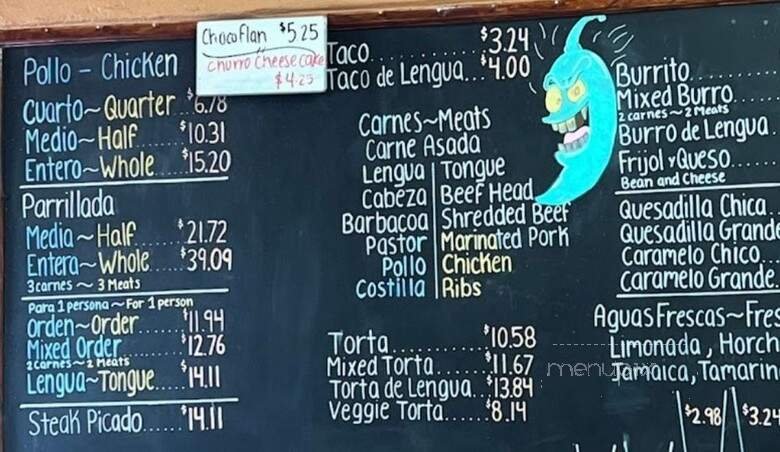 Chocoflan $5.25
Churro Cheesecake
$4.25
Pollo - Chicken
Cuarto~Quarter $6.78
Medio~Half $10.31
Entero~Whole.....$15.20
Parrillada
Media~Half......$21.72
Entera~Whole....$39.09
3 carnes ~ 3 Meats
Para 1 persona~For 1 person
Orden~Order......$11.94
Mixed Order......$12.76
2 Carnes~2 Meats
Lengua~Tongue....$14.11
Steak Picado......$14.11
Taco............$3.24
Taco de Lengua...$4.00
Carnes~Meats
Carne Asada
Lengua | Tongue
Cabeza | Beef Head
Barbacoa | Shredded Beef
Pastor | Marinated Pork
Pollo | Chicken
Costilla | Ribs
Torta............$10.58
Mixed Torta......$11.67
Torta de Lengua..$13.84
Veggie Torta.....$8.14
Burrito......
Mixed Burro.....
2 carnes~2 Meats
Burro de Lengua
Frijol y Queso......
Bean and Cheese
Quesadilla Chica
Quesadilla Grande
Caramelo Chico...
Caramelo Grande.
Aguas Frescas~Fres
Limonada, Horch
Jamaica, Tamarin
$2.98 $3.24